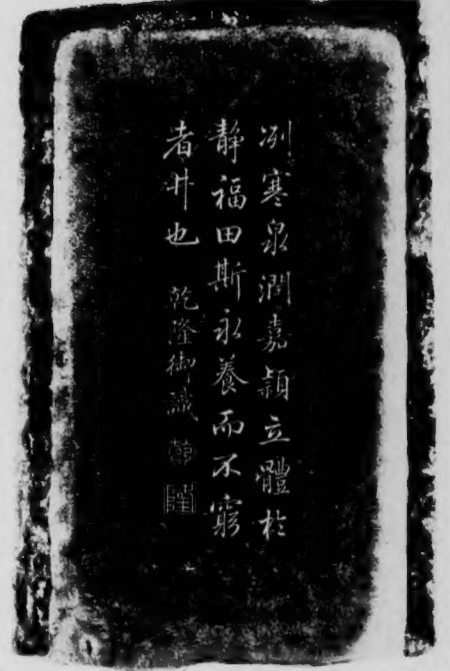 冽寒泉潤嘉穎立體於
静福田斯永養而不窮
者井也 乾隆御識 乾 隆